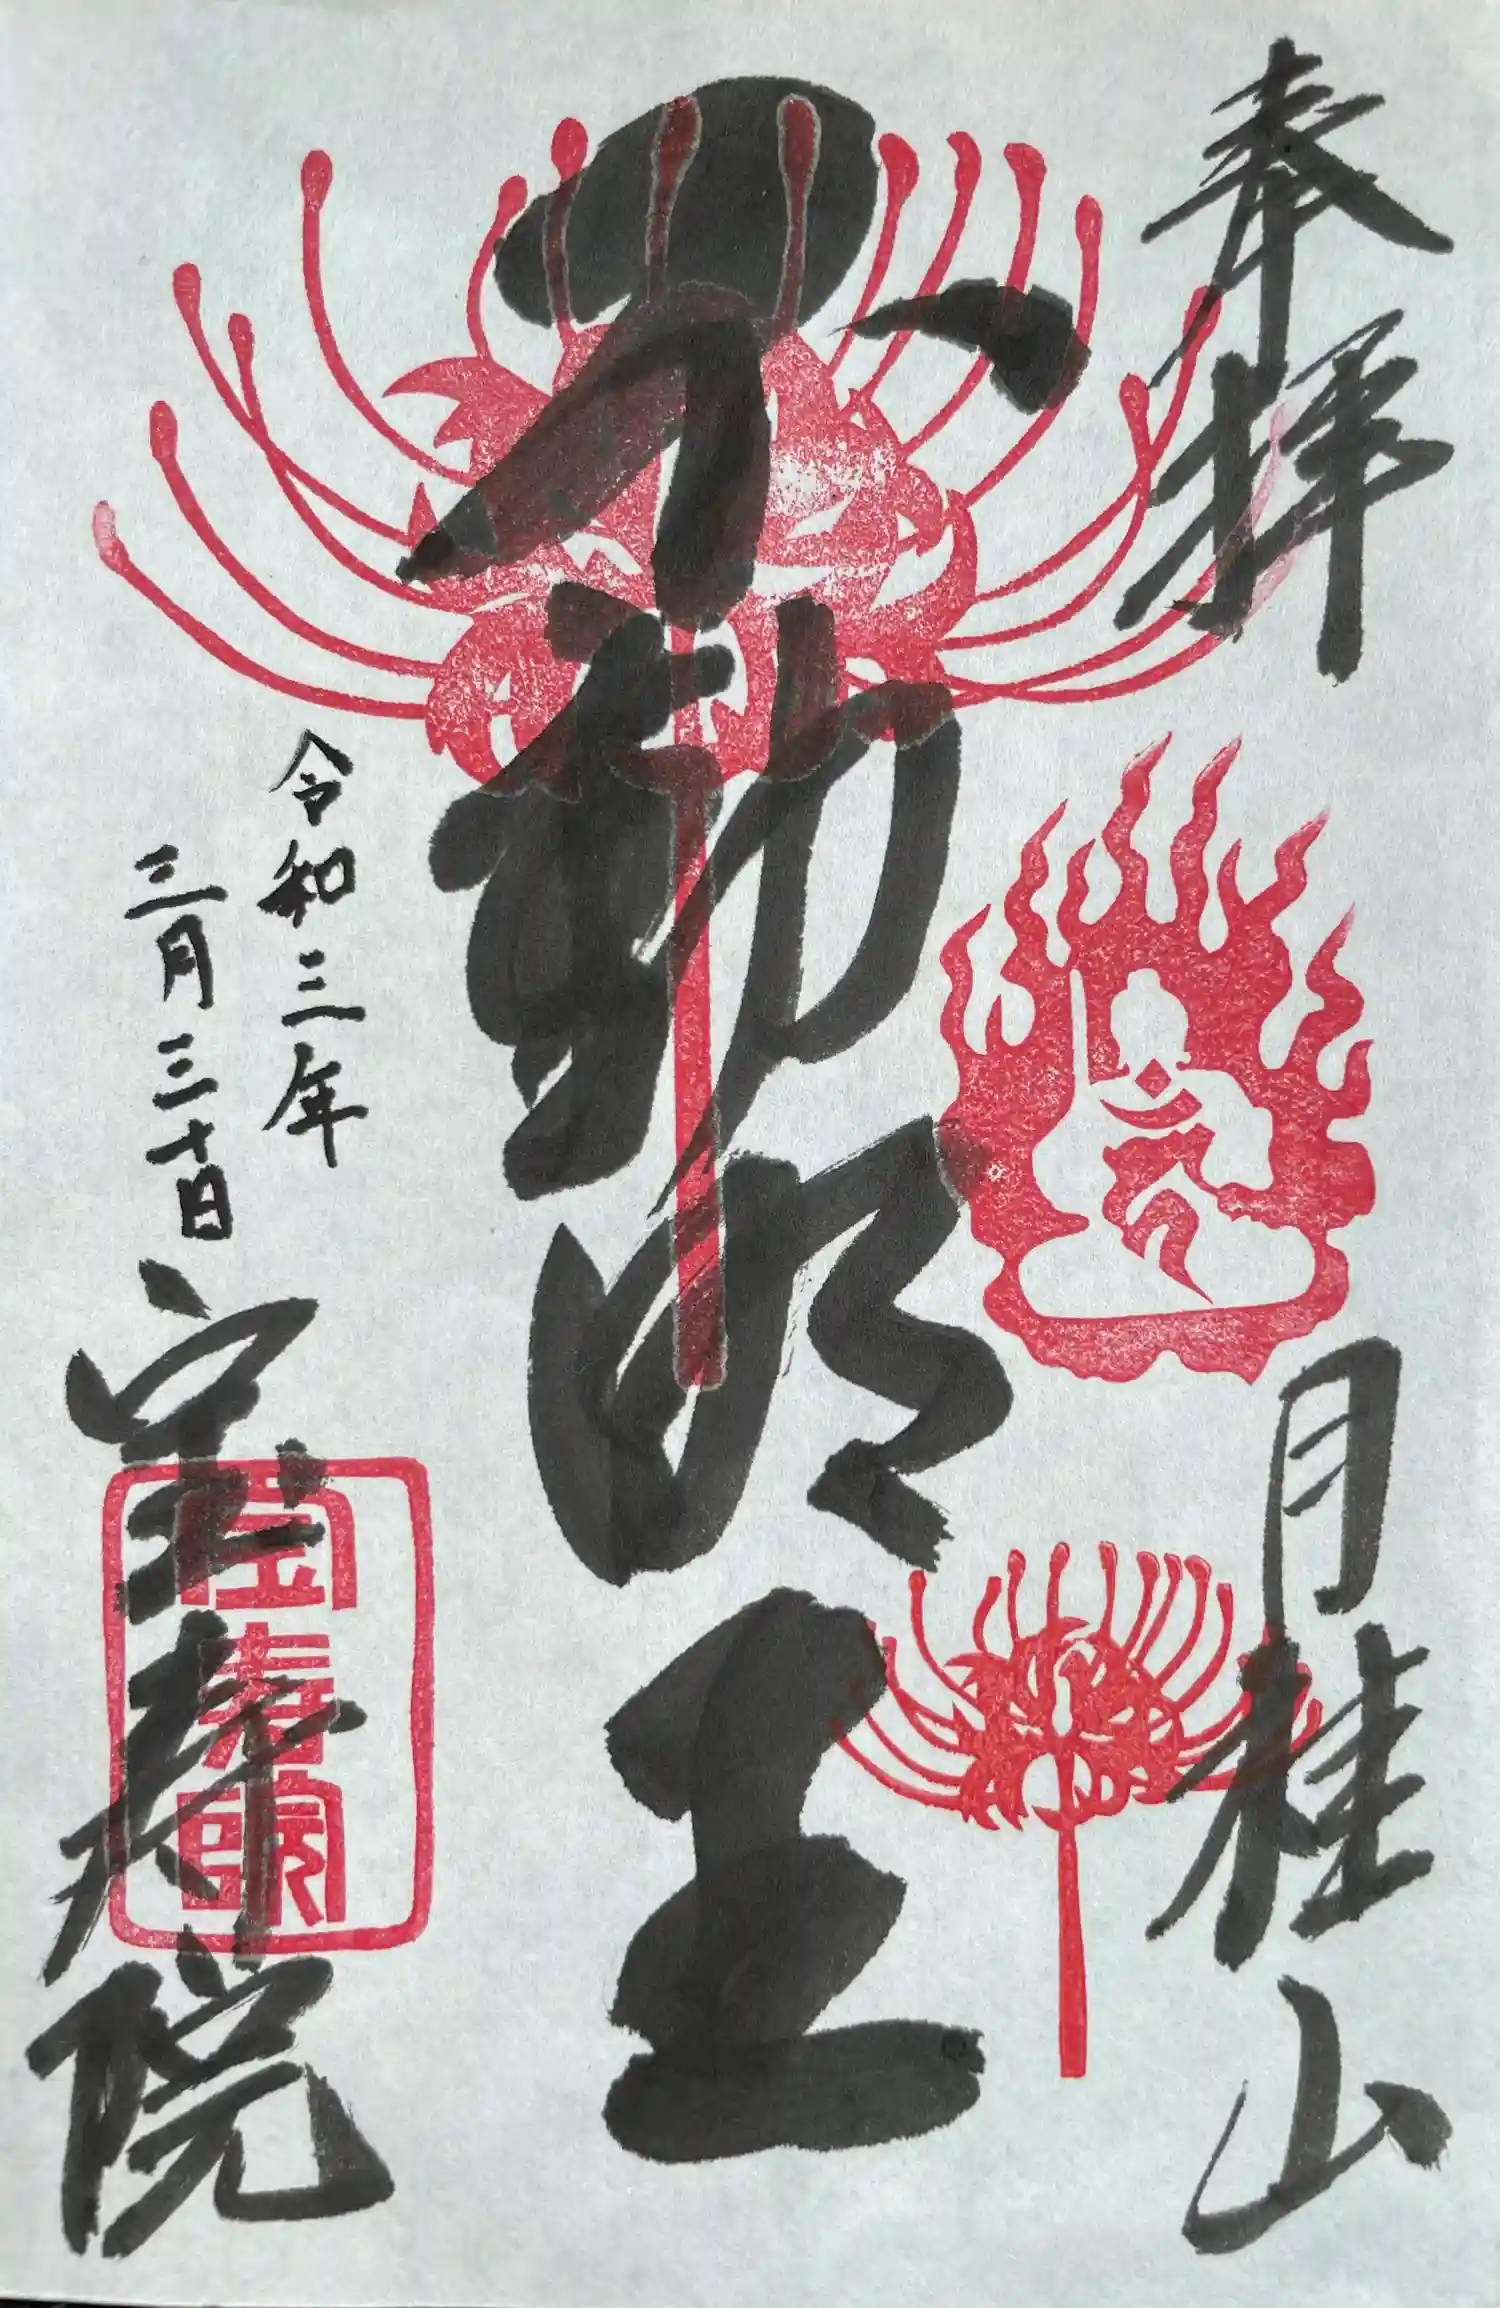 奉拝
月桂山
不動明王
令和三年
三月三十日
宝寿院
寳壽院